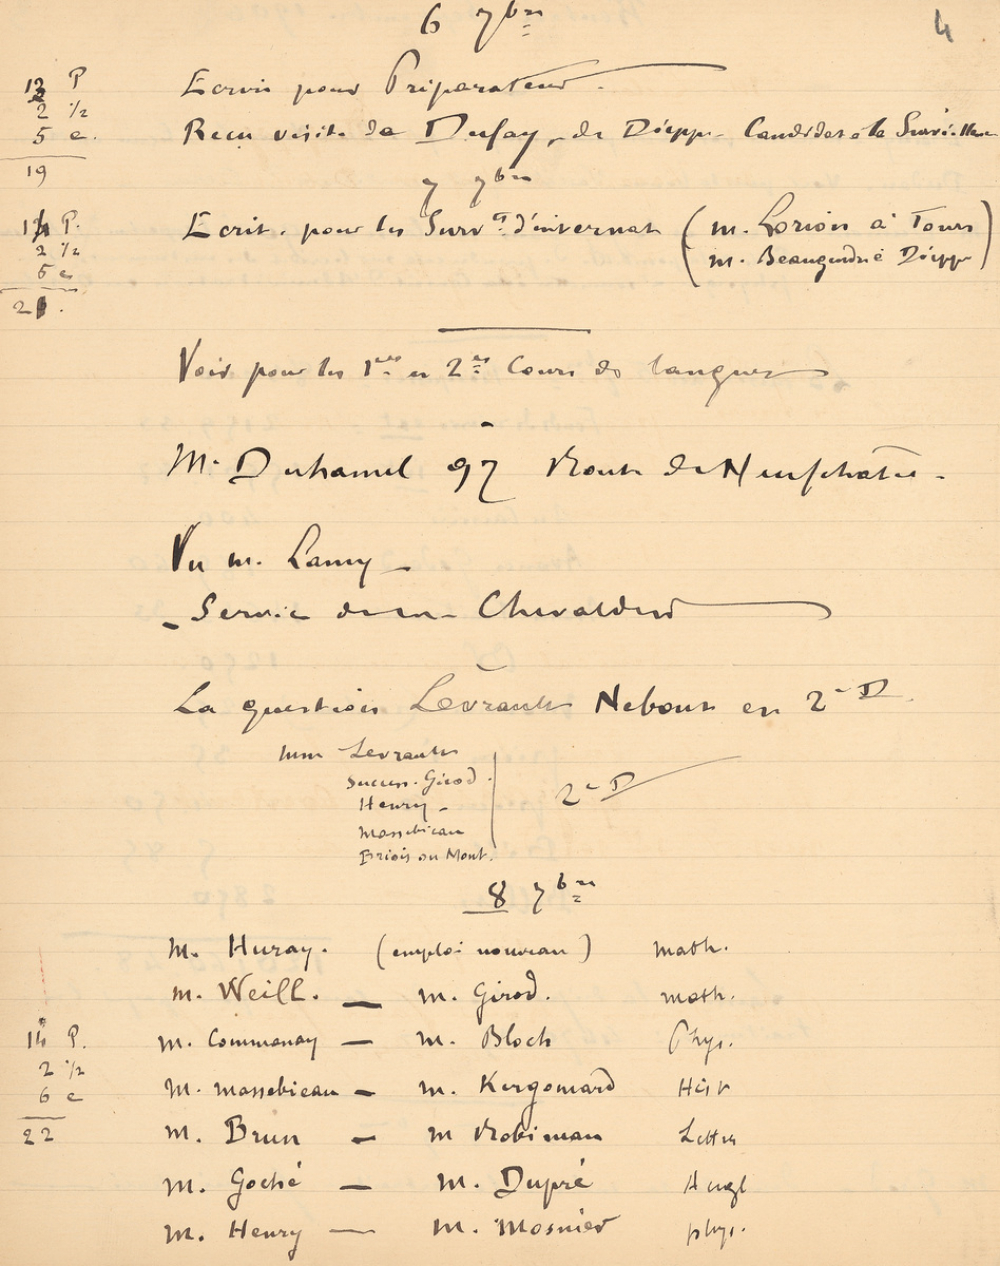 6 7bre
4
13 P
2 1/2
5 e.
19
Ecrire pour Préparateur.
Reçu visite de Dufay, de Dieppe Candidat à la Surveillance
7 7bre
14 P.
2 1/2
5 e
21.
Ecrit. pour les Survts d'internat (M. Lorion à Tours
M. Beaugendre à Dieppe)
Voir pour les 1res et 2es Cours de langues
M. Duhamel 97 Route de Neufchatel.
Vu M. Lamy
- Service de M. Chevaldin
La question Levrault Nebout en 2e D
Mm Levrault
Success. Girod.
Henry -
Massebieau
Briois ou Mont.
2e D
8 7bre
M. Huray. (emploi nouveau) math.
M. Weill. — M. Girod. math.
14 P.
2 1/2
6 e
22
M. Commanay — M. Bloch Phys.
M. Massebieau — M. Kergomard Hist
M. Brun — M Robinan Lettres
M. Goché — M. Dupré Angl
M. Henry — M. Mosnier phys.